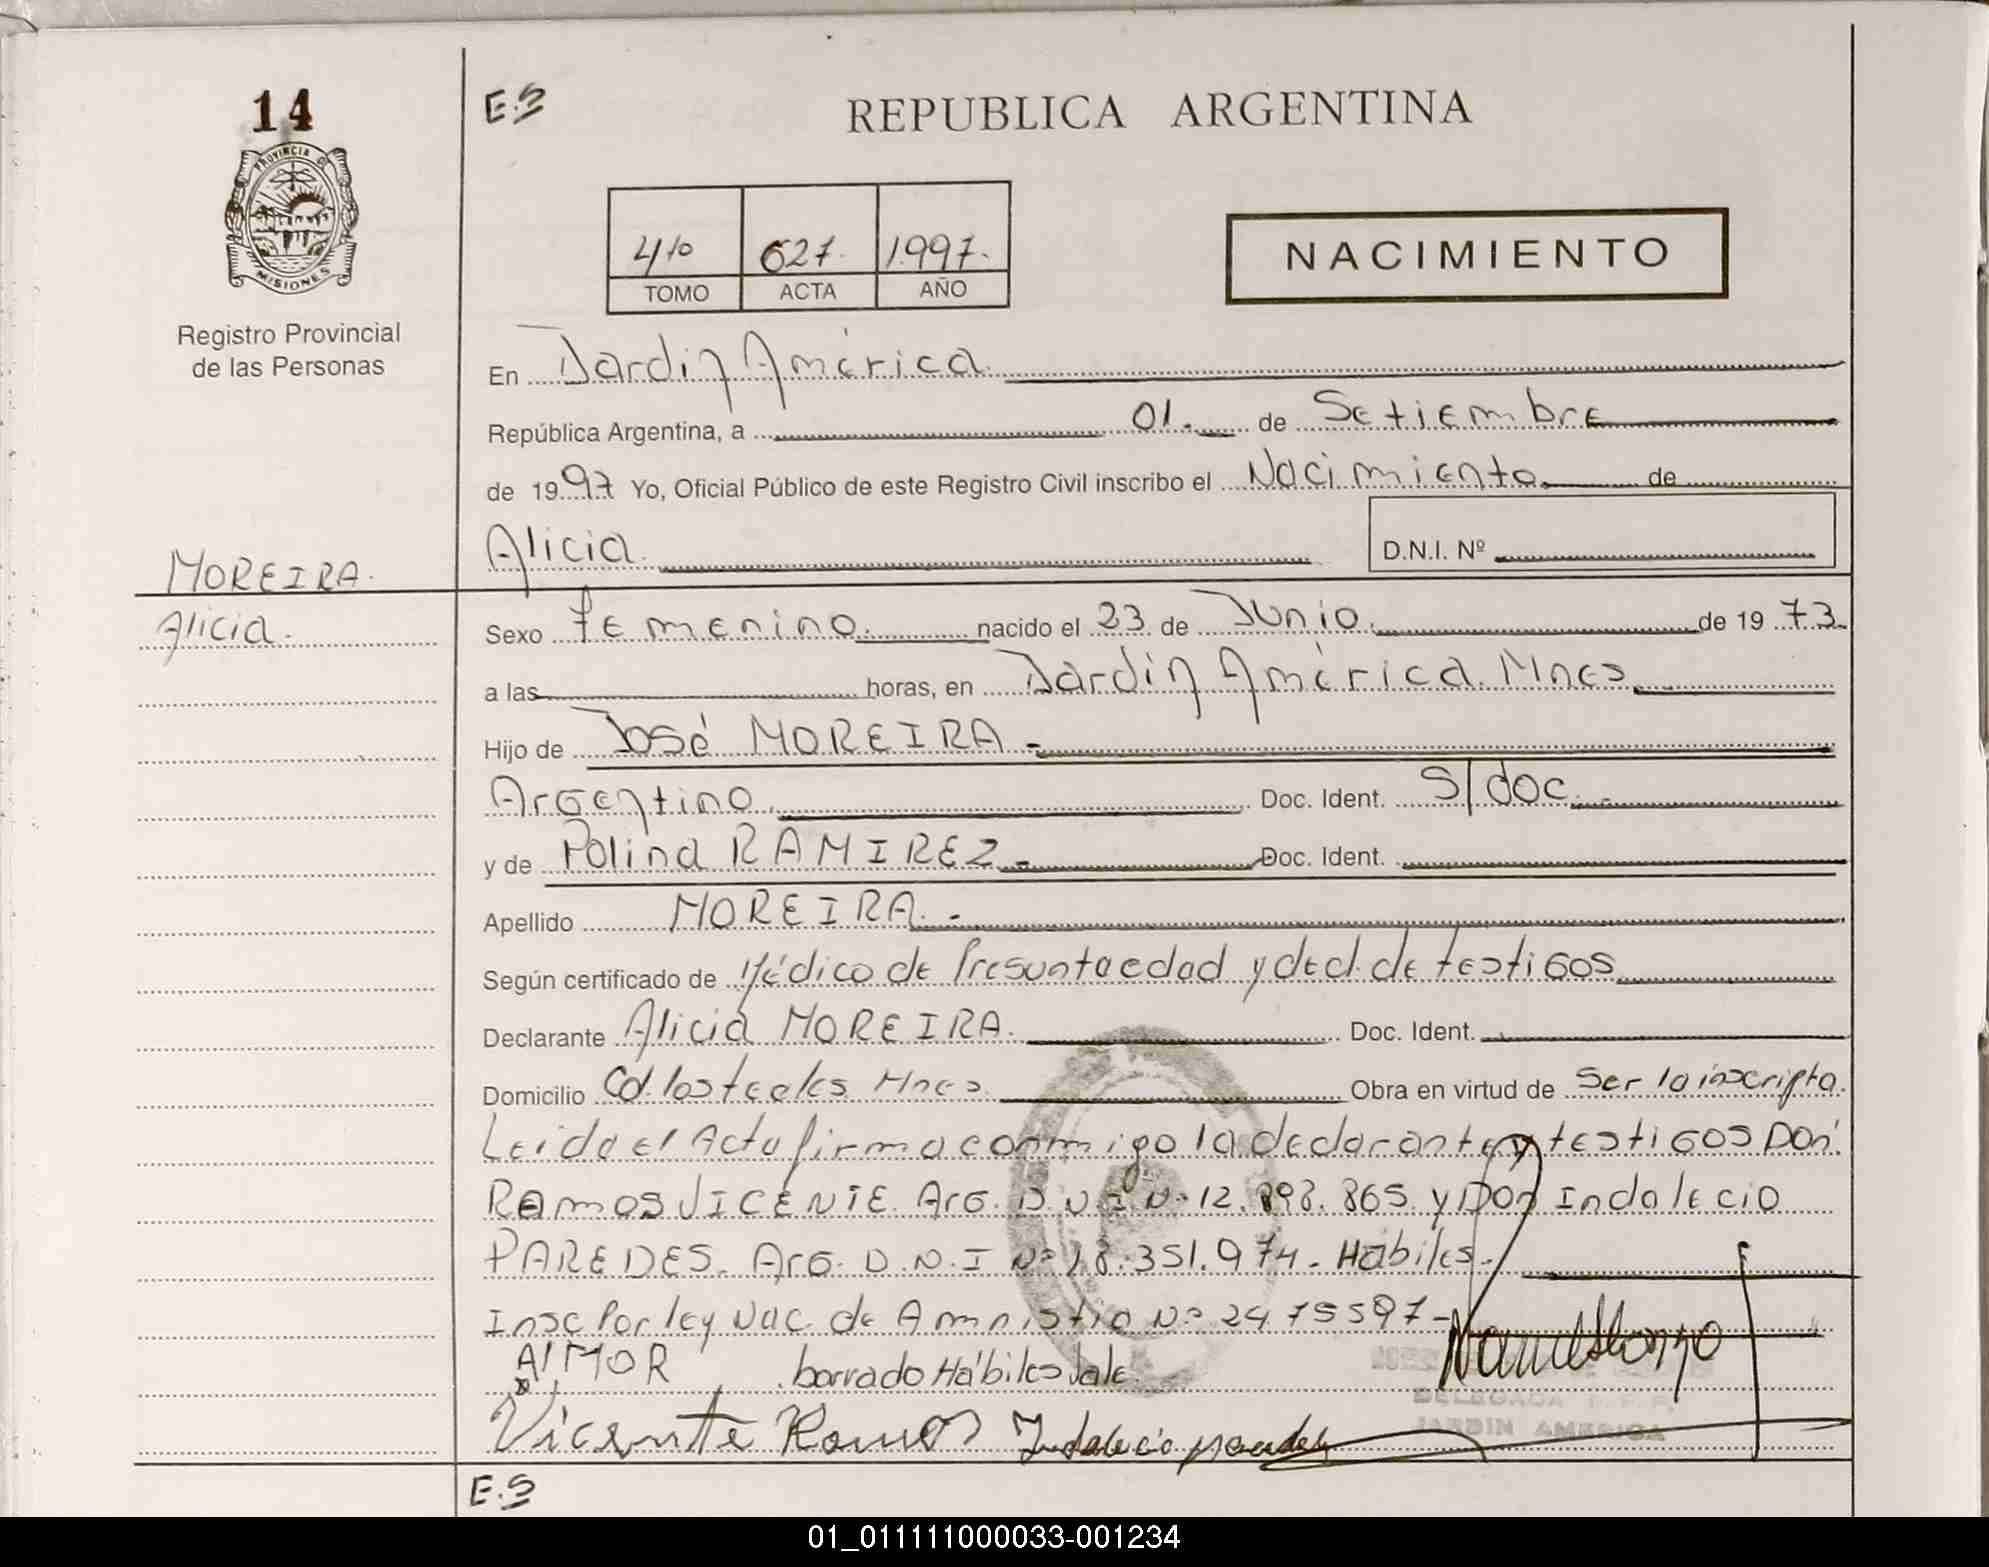 14
E.S
REPUBLICA ARGENTINA
PROVINCIA D
MISIONES
4to 627. 1.997.
TOMO ACTA AÑO
NACIMIENTO
Registro Provincial
de las Personas
En Jardin América
República Argentina, a 01. de Setiembre
de 1997 Yo, Oficial Público de este Registro Civil inscribo el Nacimiento de
Alicia. D.N.I. Nº
MOREIRA.
Alicia.
Sexo femenino. nacido el 23 de Junio. de 1973.
a las horas, en Jardin América. Mnes.
Hijo de José MOREIRA.-
Argentino. Doc. Ident. S/doc.-
y de Polina RAMIREZ.- Doc. Ident.
Apellido MOREIRA.-
Según certificado de Médico de Presunta edad y decl. de testigos
Declarante Alicia MOREIRA. Doc. Ident.
Domicilio Col. los teales Mnes. Obra en virtud de Ser la inscripta.
Leida el Acta firma conmigo la declarante y testigos Don:
RAmos VICENTE. Arg. D.N.I Nº 12.898.865 y Don Indalecio
PAREDES. Arg. D.N.I Nº 18.351.974. Hábiles.
Insc Por ley Nac. de Amnistia Nº 24.755 97-
Al MOR borrado Hábiles Vale.
DELEGADA
JARDIN AMERICA
Vicente Ramos Indalecio
E.S
01_011111000033-001234